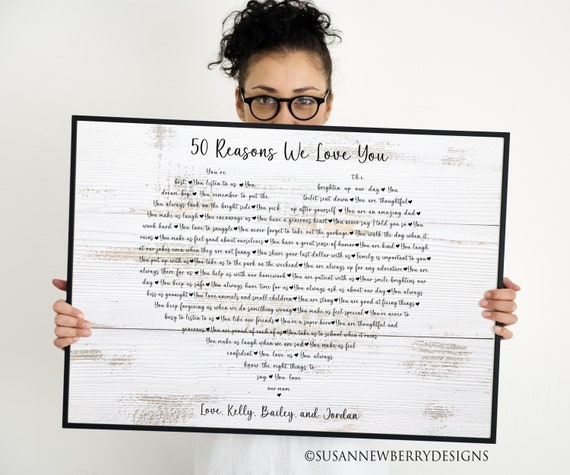 50 Reasons We Love You
You're the
best ♥ You listen to us ♥ You brighten up our day ♥ You
dream big ♥ You remember to put the toilet seat down ♥ You are thoughtful ♥
You always look on the bright side ♥ You pick up after yourself ♥ You are an amazing dad ♥
You make us laugh ♥ You encourage us ♥ You have a generous heart ♥ You never say I told you so ♥ You
work hard ♥ You love to snuggle ♥ You never forget to take out the garbage ♥ You walk the dog when it
rains ♥ You make us feel good about ourselves ♥ You have a great sense of humor ♥ You are kind ♥ You laugh
at our jokes even when they are not funny ♥ You share your last dollar with us ♥ Family is important to you ♥
You put up with us ♥ You take us to the park on the weekend ♥ You are always up for any adventure ♥ You are
always there for us ♥ You help us with our homework ♥ You are patient with us ♥ Your smile brightens our
day ♥ You keep us safe ♥ You always have time for us ♥ You always ask us about our day ♥ You always
kiss us goodnight ♥ You love animals and small children ♥ You are strong ♥ You are good at fixing things ♥
You keep forgiving us when we do something wrong ♥ You make us feel special ♥ You're never to
busy to listen to us ♥ You like our friends ♥ You're a super hero ♥ You are thoughtful and
generous ♥ You are proud of each of us ♥ You take us to school when it rains
You make us laugh when we are sad ♥ You make us feel
confident ♥ You love us ♥ You always
know the right things to
say ♥ You love
our mom
♥
Love, Kelly, Bailey, and Jordan
©SUSANNEWBERRYDESIGNS